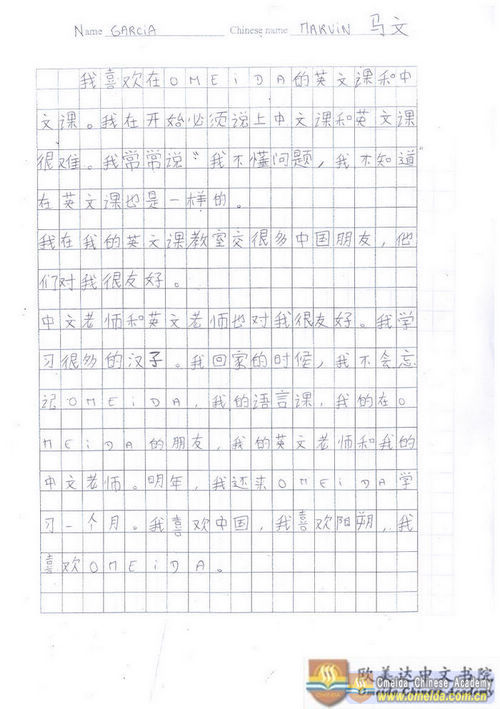 Name GARCIA Chinese name MARVIN 马文
我喜欢在OMEiDA的英文课和中
文课。我在开始必须说上中文课和英文课
很难。我常常说“我不懂问题，我不知道”
在英文课也是一样的。
我在我的英文课教室交很多中国朋友，他
们对我很友好。
中文老师和英文老师也对我很友好。我学
习很多的汉子。我回家的时候，我不会忘
记OMEiDA，我的语言课，我的在O
MEiDA的朋友，我的英文老师和我的
中文老师。明年，我还来OMEiDA学
习一个月。我喜欢中国，我喜欢阳朔，我
喜欢OMEiDA。
欧美达中文书院
Omeida Chinese Academy
www.omeida.com.cn